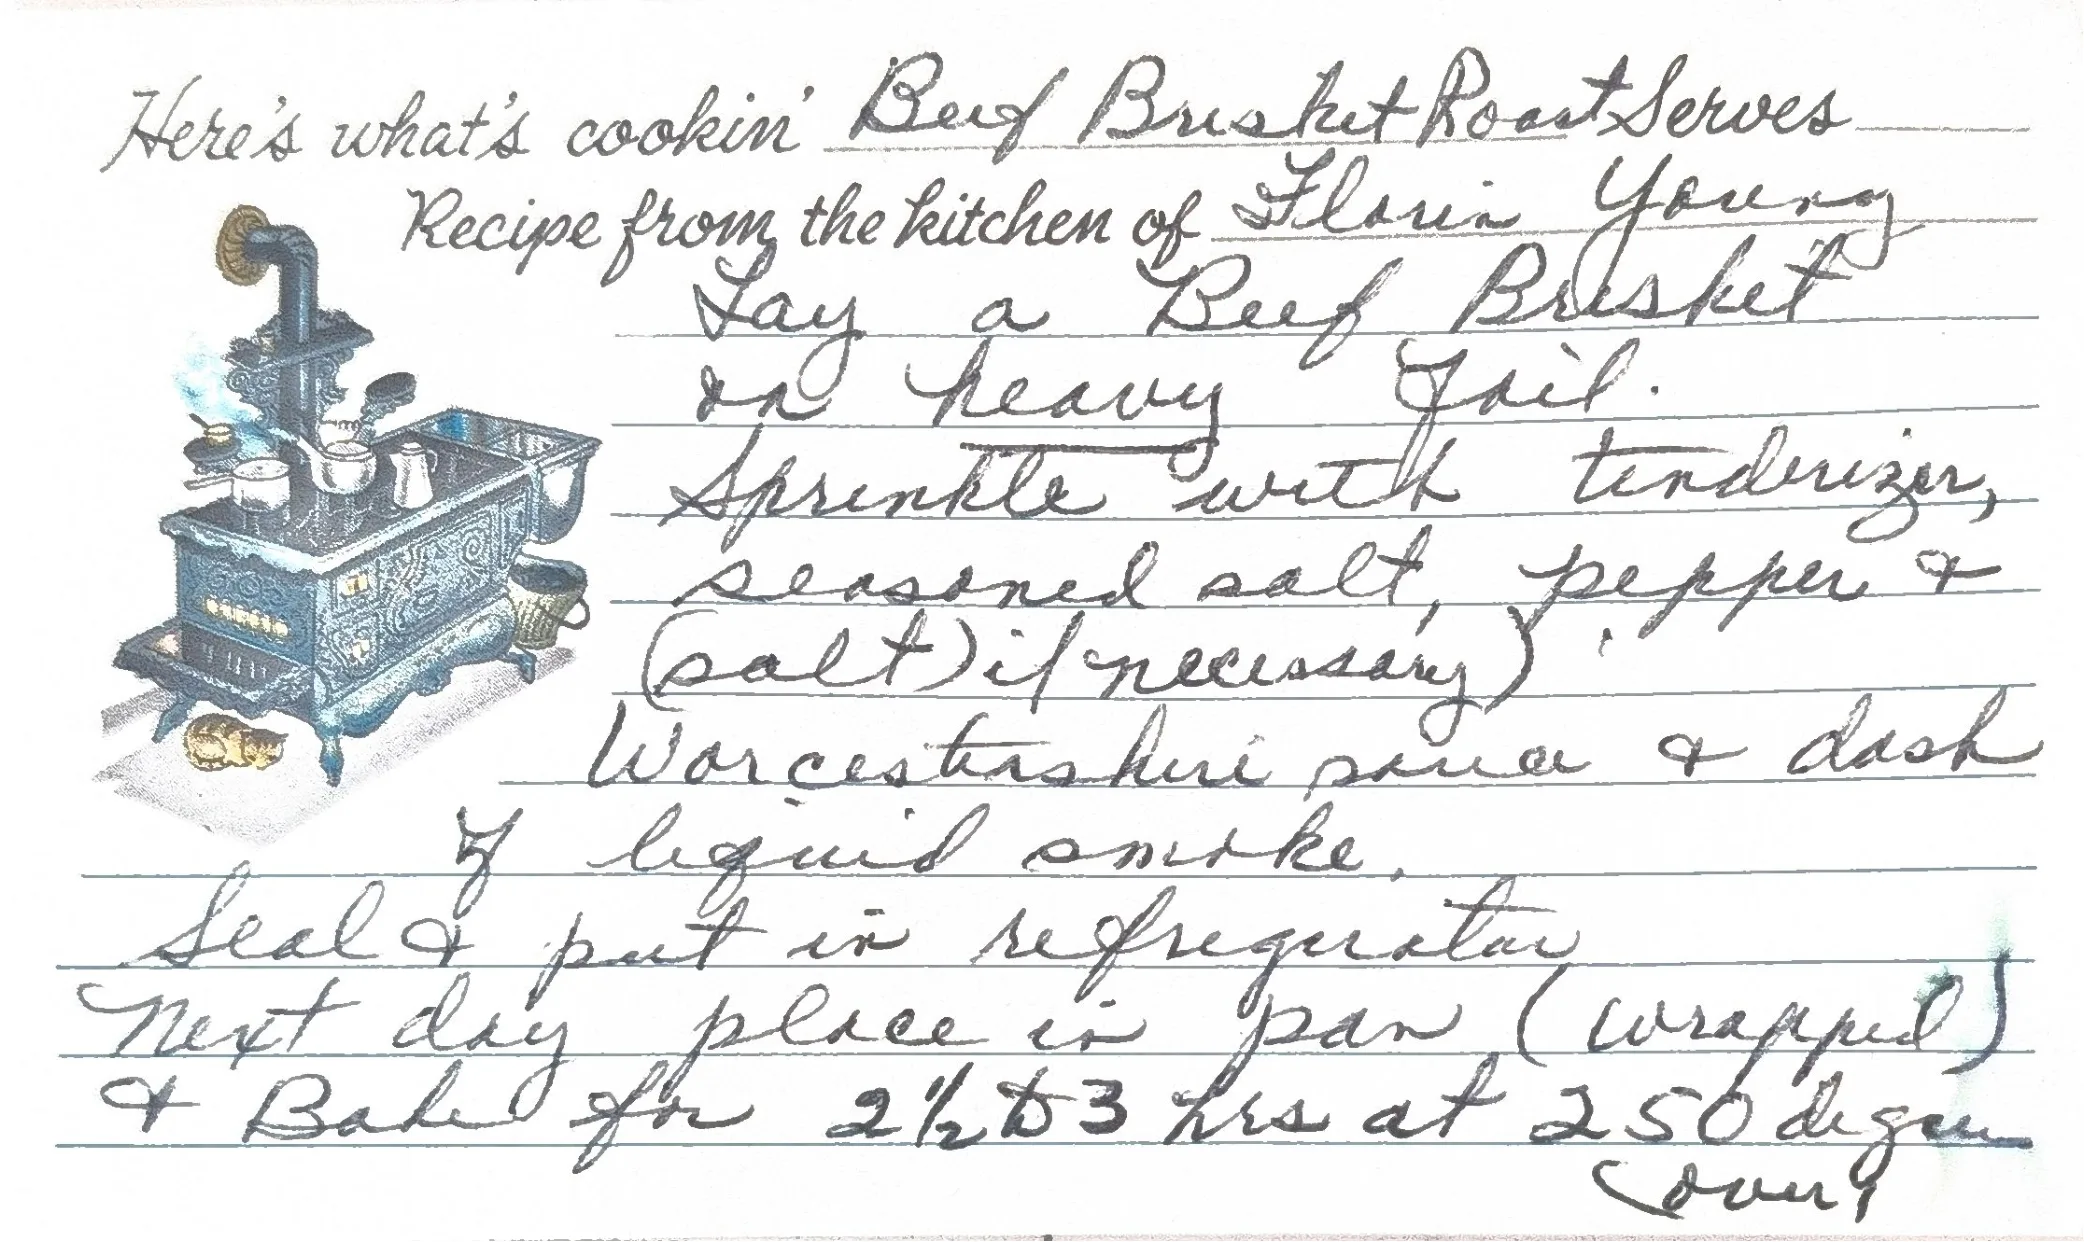 Here's what's cookin' Beef Brisket Roast Serves
Recipe from the kitchen of Florin Young
Lay a Beef Brisket
on heavy foil.
Sprinkle with tenderizer,
seasoned salt, pepper &
(salt) if necessary)
Worcestershire sauce & dash
of liquid smoke.
Seal & put in refrigerator
Next day place in pan (wrapped)
& Bake for 2 1/2 to 3 hrs at 250 degree
(over)